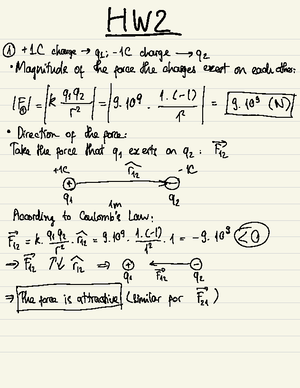 HW2
① +1C charge → q₁; -1C charge → q₂
• Magnitude of the force the charges exert on each other:
|F⃗| = |k q₁q₂/r²| = |9.10⁹ . 1.(-1)/1²| = 9.10⁹ (N)
• Direction of the force:
Take the force that q₁ exerts on q₂: F⃗₁₂
+1C r̂₁₂ -1C
q₁ 1m q₂
According to Coulomb's Law:
F⃗₁₂ = k. q₁q₂/r² . r̂₁₂ = 9.10⁹ . 1.(-1)/1² . 1 = -9.10⁹ <0
⇒ F⃗₁₂ ↑↓ r̂₁₂ ⇒ ⊕ ← ⊖
q₁ F⃗₁₂ q₂
⇒ The force is attractive (similar for F⃗₂₁)